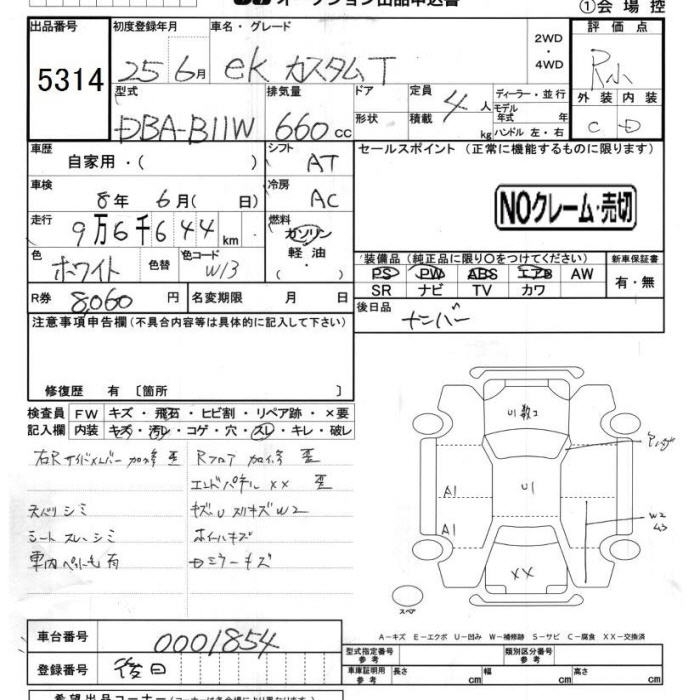 オークション出品申込書
①会場控
出品番号 初度登録年月 車名・グレード 評価点
5314 25 6月 ek カスタムT 2WD・4WD R小
型式 排気量 ドア 定員 ディーラー・並行 外装 内装
DBA-B11W 660cc 形状 積載 4人 kg モデル年式 年 ハンドル 左・右 C D
車歴 自家用・( ) シフト AT セールスポイント (正常に機能するものに限ります)
車検 8年 6月( 日) 冷房 AC
NOクレーム・売切
走行 9万6千644km 燃料 ガソリン 軽油・( )
色 ホワイト 色替 色コード W13
装備品(純正品に限り○をつけてください) 新車保証書
PS PW ABS エアB AW 有・無
SR ナビ TV カワ
R券 8,060円 名変期限 月 日
後日品 ナンバー
注意事項申告欄(不具合内容等は具体的に記入して下さい)
修復歴 有 〔箇所 〕
検査員 FW キズ・飛石・ヒビ割・リペア跡・×要
記入欄 内装 キズ・汚レ・コゲ・穴・スレ・キレ・破レ
右Rサイドメンバー 加修 歪 Rフロア 加修 歪
エンドパネル XX 歪
シミ キズU スリキズ W2
シート スレ シミ ホイールキズ
車内ペット毛有 ミラーキズ
U1
A1 U1
W2
A1
XX
スペア
A-キズ E-エクボ U-凹み W-補修跡 S-サビ C-腐食 XX-交換済
車台番号 0001854
型式指定番号 参考 類別区分番号 参考
登録番号 後日
車庫証明用 参考 長さ cm 幅 cm 高さ cm
希望出品コーナー